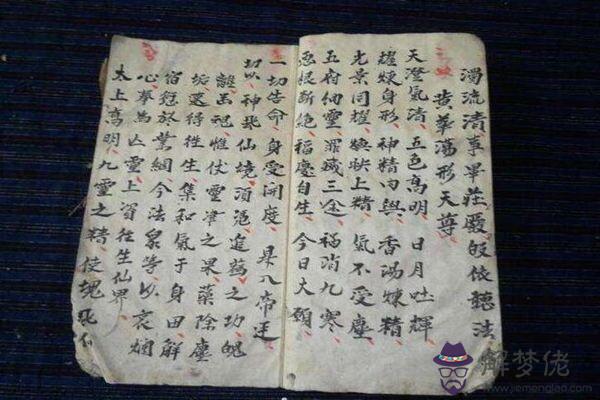 濁流清亨畢莊嚴皈依聽法
黃華蕩形天尊
天澄氣清五色高明日月吐輝
煉身形神精內與香湯煉精
光景同耀煥映上精氣不受塵
五府納靈罪滅三塗福消九寒
惡根斷絕福慶自生今日大願
一切告命身受開度昇入帝廷
切以神飛仙境須憑進蕩之功魄
離玉冠惟仗靈津之果藥除塵
垢還得性生集和氣于身田解
宿愆於業網今法眾等以哀燗
心拳為亡靈上資往生仙界
太上高明九靈之精使魂
解梦佬
www.jiemenglao.com